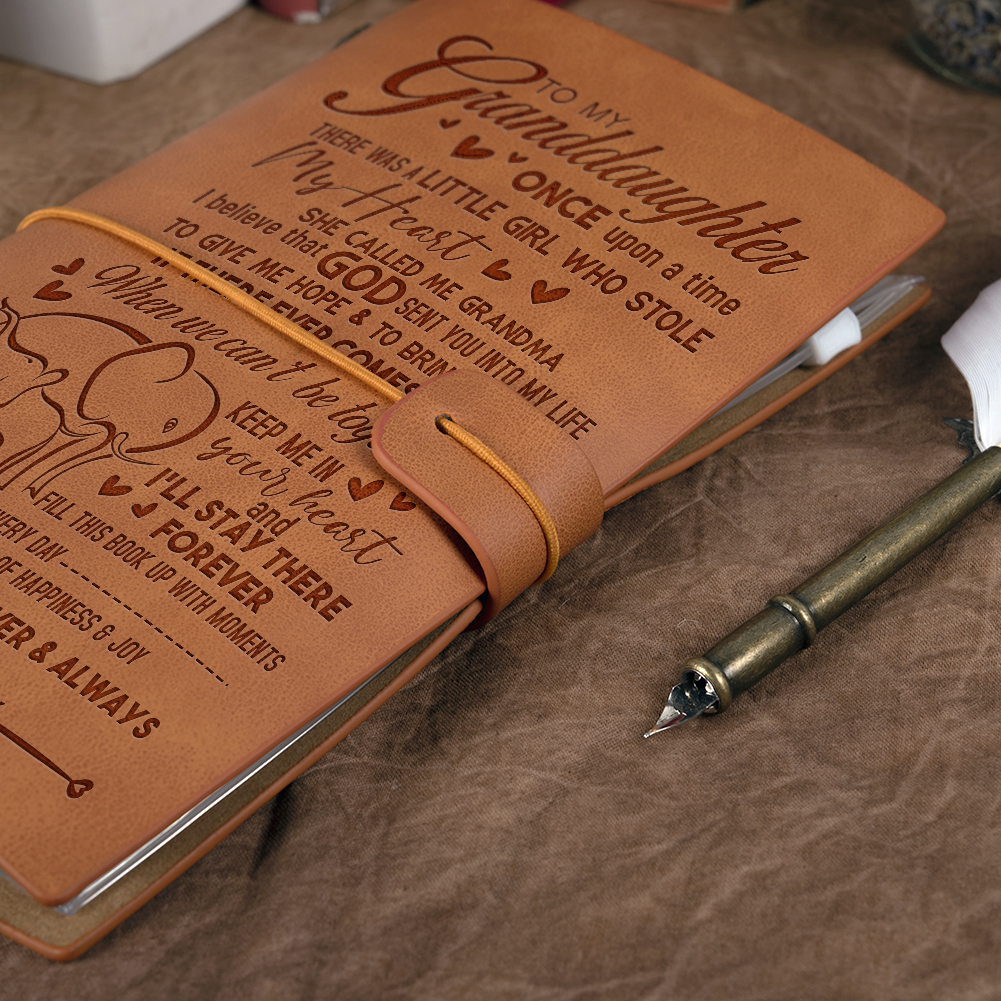 TO MY
Granddaughter
ONCE upon a time
THERE WAS A LITTLE GIRL WHO STOLE
My Heart
SHE CALLED ME GRANDMA
I believe that GOD SENT YOU INTO MY LIFE
TO GIVE ME HOPE & TO BRIN
EVER COMES
When we can't be tog
KEEP ME IN
your heart
and
I'LL STAY THERE
FOREVER
FILL THIS BOOK UP WITH MOMENTS
VERY DAY
OF HAPPINESS & JOY
VER & ALWAYS